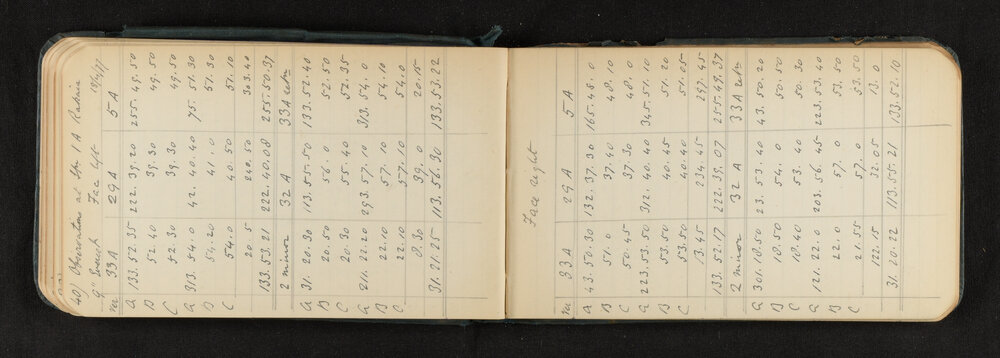 40) Observations at Stn 1 A
9" Face left
ver 33A 29A 5A
A 133.52.35 222.39.20 255.49.50
B 52.40 39.30 49.50
C 52.30 39.30 49.50
A 313.54.0 42.40.40 75.51.30
B 54.20 41.0 51.30
C 54.0 40.50 51.10
20 5 240.50 303.40
133.53.21 222.40.08 255.50.37
2 mirror 32A 33A retn
A 31.20.30 113.55.50 133.52.40
B 20.50 56.0 52.50
C 20.30 55.40 52.35
A 211.22.20 293.57.10 313.54.0
B 22.10 57.10 54.10
C 22.10 57.10 54.0
8.30 39.0 20.15
31.21.25 113.56.30 133.53.22
Face right
ver 33A 29A 5A
A 43.50.30 132.37.30 165.48.0
B 51.0 37.40 48.10
C 50.45 37.30 48.0
A 223.53.50 312.40.40 345.51.10
B 53.50 40.45 51.20
C 53.50 40.40 51.05
13.45 234.45 297.45
133.52.17 222.39.07 255.49.37
2 mirror 32 A 33A retn
A 301.18.50 23.53.40 43.50.20
B 18.50 54.0 50.50
C 18.40 53.40 50.30
A 121.22.0 203.56.45 223.53.40
B 22.0 57.0 53.50
C 21.55 57.0 53.50
122.15 32.05 13.0
31.20.22 113.55.21 133.52.10